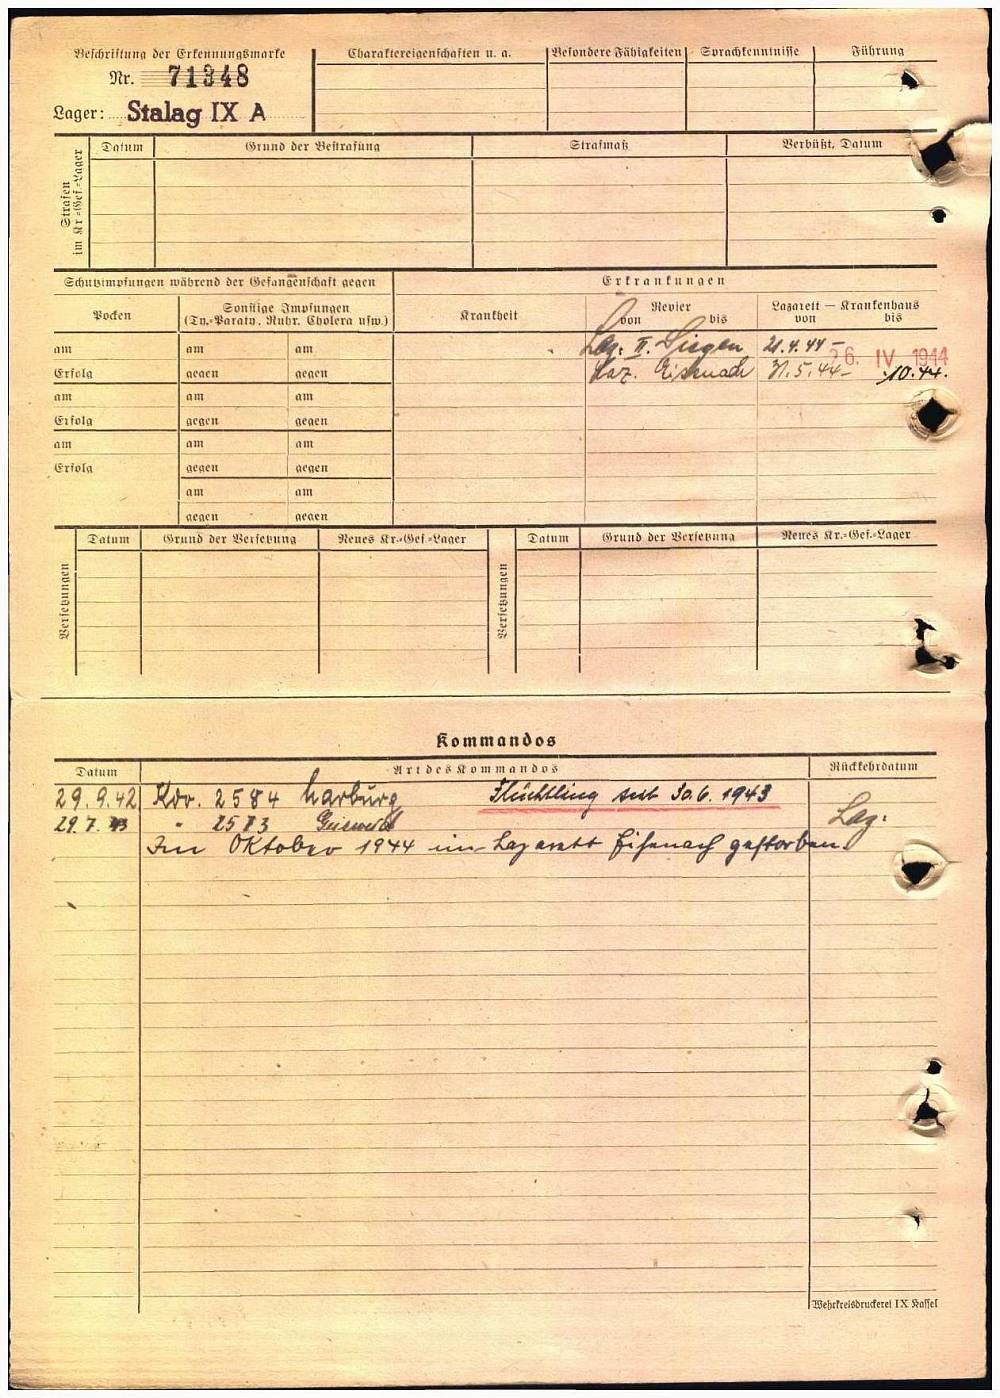 Beschriftung der Erkennungsmarke
Nr. 71348
Lager: Stalag IX A
Charaktereigenschaften u. a.
Besondere Fähigkeiten
Sprachkenntnisse
Führung
Strafen im Kr.-Gef.-Lager
Datum
Grund der Bestrafung
Strafmaß
Verbüßt, Datum
Schutzimpfungen während der Gefangenschaft gegen
Erkrankungen
Pocken
Sonstige Impfungen
(Ty.-Paraty., Ruhr, Cholera usw.)
Krankheit
Revier
von bis
Lazarett — Krankenhaus
von bis
am am am
Laz. II. Siegen 21.4.44 – 26. IV. 1944
Erfolg gegen gegen
Laz. Eisenach 31.5.44 – .10.44.
am am am
Erfolg gegen gegen
am am am
Erfolg gegen gegen
am am
gegen gegen
Versetzungen
Datum
Grund der Versetzung
Neues Kr.-Gef.-Lager
Versetzungen
Datum
Grund der Versetzung
Neues Kr.-Gef.-Lager
Kommandos
Datum
Art des Kommandos
Rückkehrdatum
29.9.42 Kdo. 2584 Harburg Flüchtling seit 30.6.1943
29.7.43 " 2573 Laz.
Im Oktober 1944 im Lazarett Eisenach gestorben.
Wehrkreisdruckerei IX Kassel